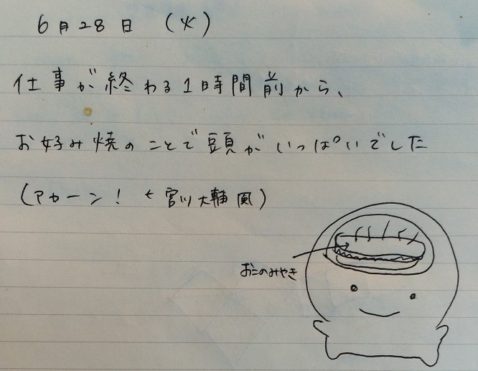 6月28日 (火)
仕事が終わる1時間前から、
お好み焼のことで頭がいっぱいでした
(アカーン! ← 宮川大輔風)
おこのみやき